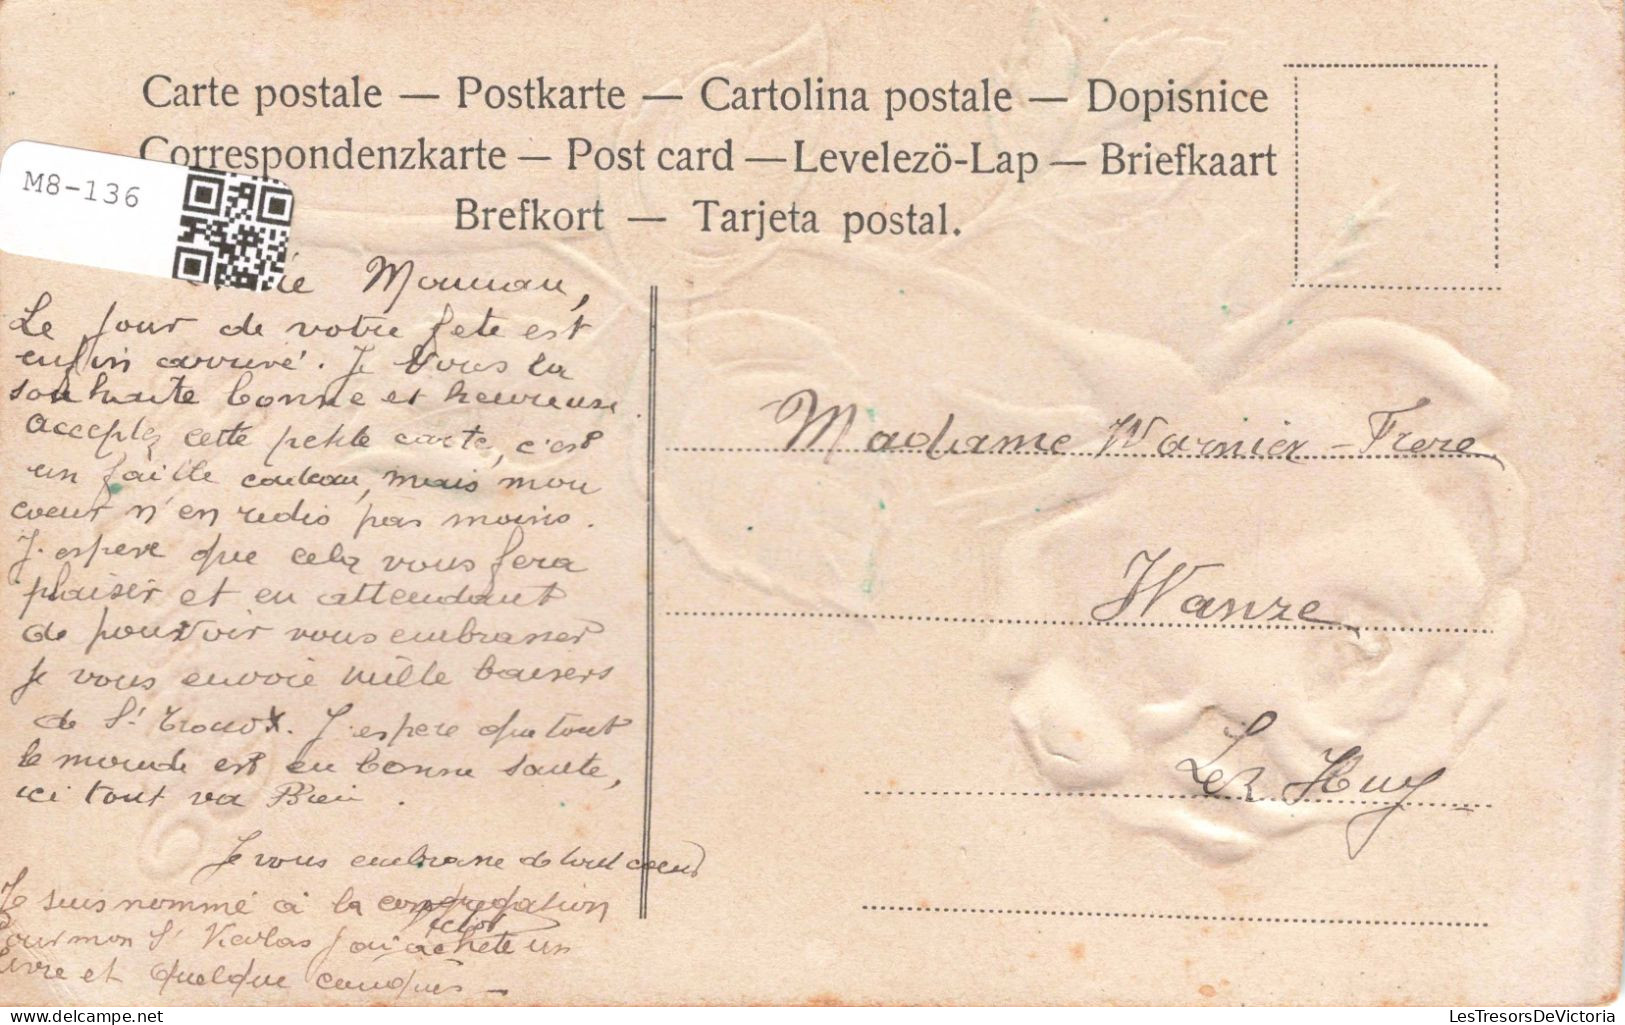 Carte postale — Postkarte — Cartolina postale — Dopisnice
Correspondenzkarte — Post card — Levelezö-Lap — Briefkaart
Brefkort — Tarjeta postal.
M8-136
Mouman,
Le jour de votre fete est
enfin arrivé. Je vous la
souhaite bonne et heureuse.
Acceptez cette petite carte, c'est
un faille cadeau, mais mon
coeur n'en redis pas moins.
J'espere que cela vous fera
plaisir et en attendant
de pouvoir vous embrasser
Je vous envoie mille baisers
de St. Troux. J'espere que tout
le monde est en bonne sante,
ici tout va Bien.
Je vous embrasse de tout coeur
Je suis nommé à la congregation
Pour mon St Nicolas j'ai achete un
livre et quelque
Madame Warnier-Frere
Wanze
Lez Huy
lestresorsdevictoria @ delcampe.net
LesTresorsDeVictoria